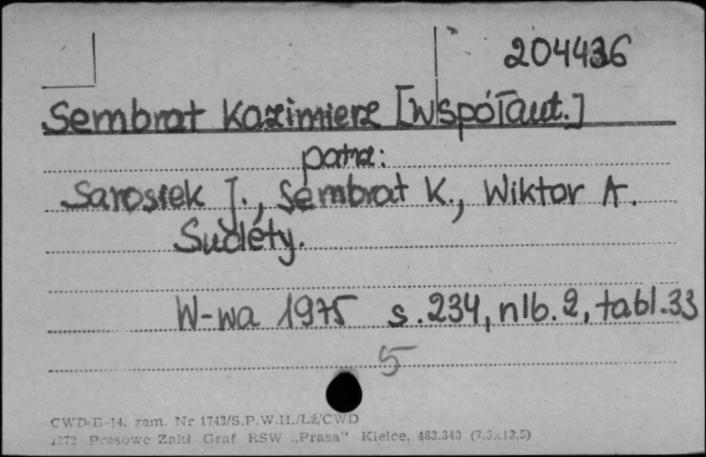 204436
Sembrat Kazimierz [Współaut.]
patrz:
Sarosiek J., Sembrat K., Wiktor A.
Sudety.
W-wa 1975 s. 234, nlb. 2, tabl. 33
5
CWD-D-14. zam. Nr 1743/S.P.W.H./Łż/CWD
Prasowe Zakł. Graf RSW „Prasa” Kielce, 483.343 (7,5x12,5)